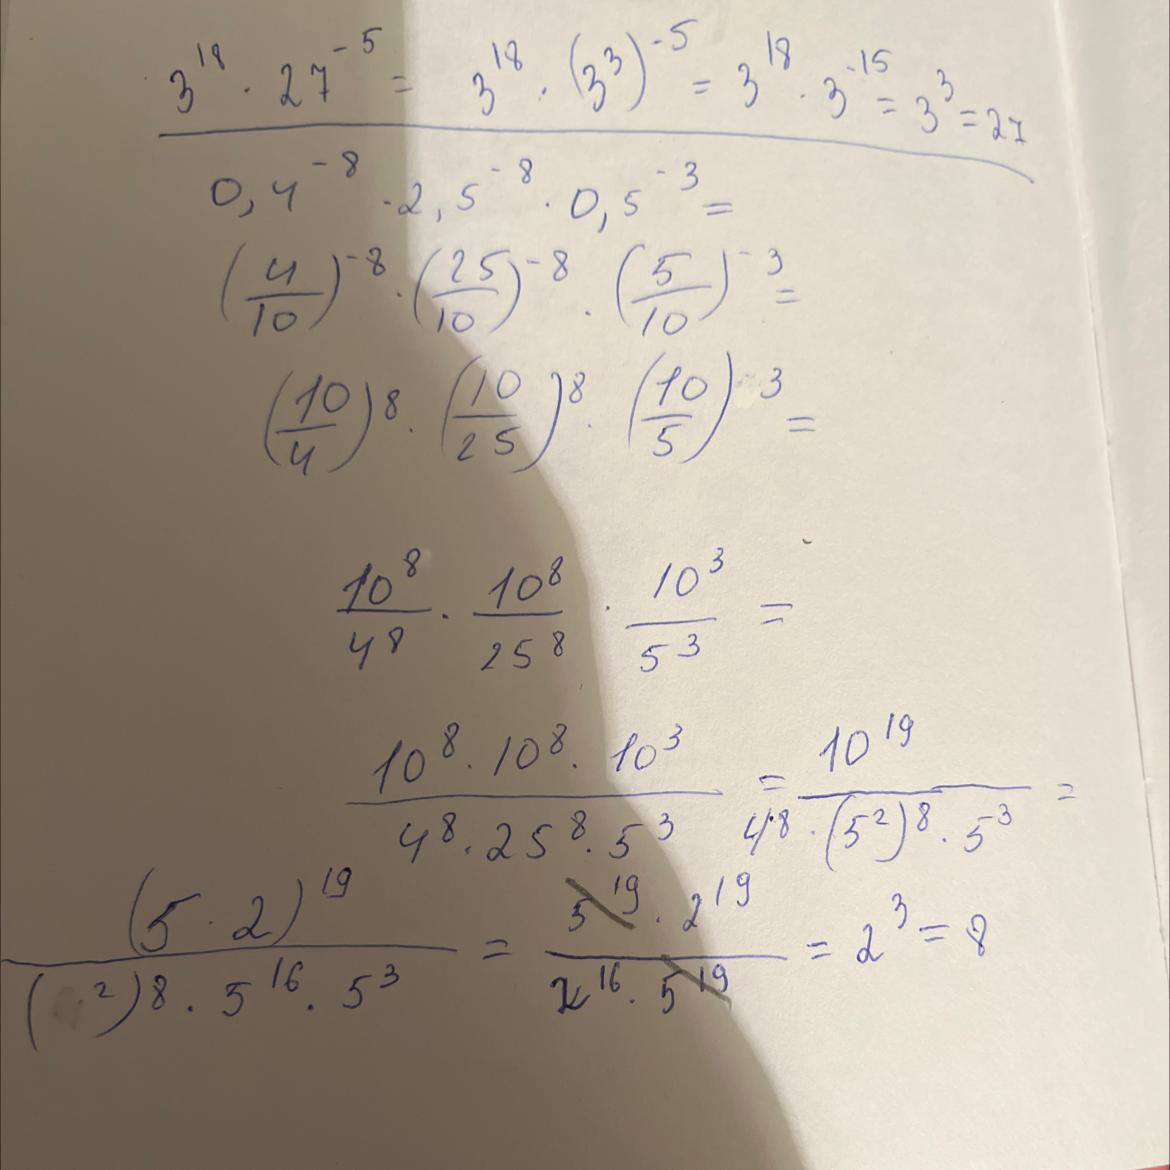 3^18 · 27^-5 = 3^18 · (3^3)^-5 = 3^18 · 3^-15 = 3^3 = 27
0,4^-8 · 2,5^-8 · 0,5^-3 =
(4/10)^-8 · (25/10)^-8 · (5/10)^-3 =
(10/4)^8 · (10/25)^8 · (10/5)^3 =
10^8/4^8 · 10^8/25^8 · 10^3/5^3 =
(10^8 · 10^8 · 10^3)/(4^8 · 25^8 · 5^3) = 10^19/(4^8 · (5^2)^8 · 5^3) =
(5 · 2)^19/(( ^2)^8 · 5^16 · 5^3) = (5^19 · 2^19)/(2^16 · 5^19) = 2^3 = 8